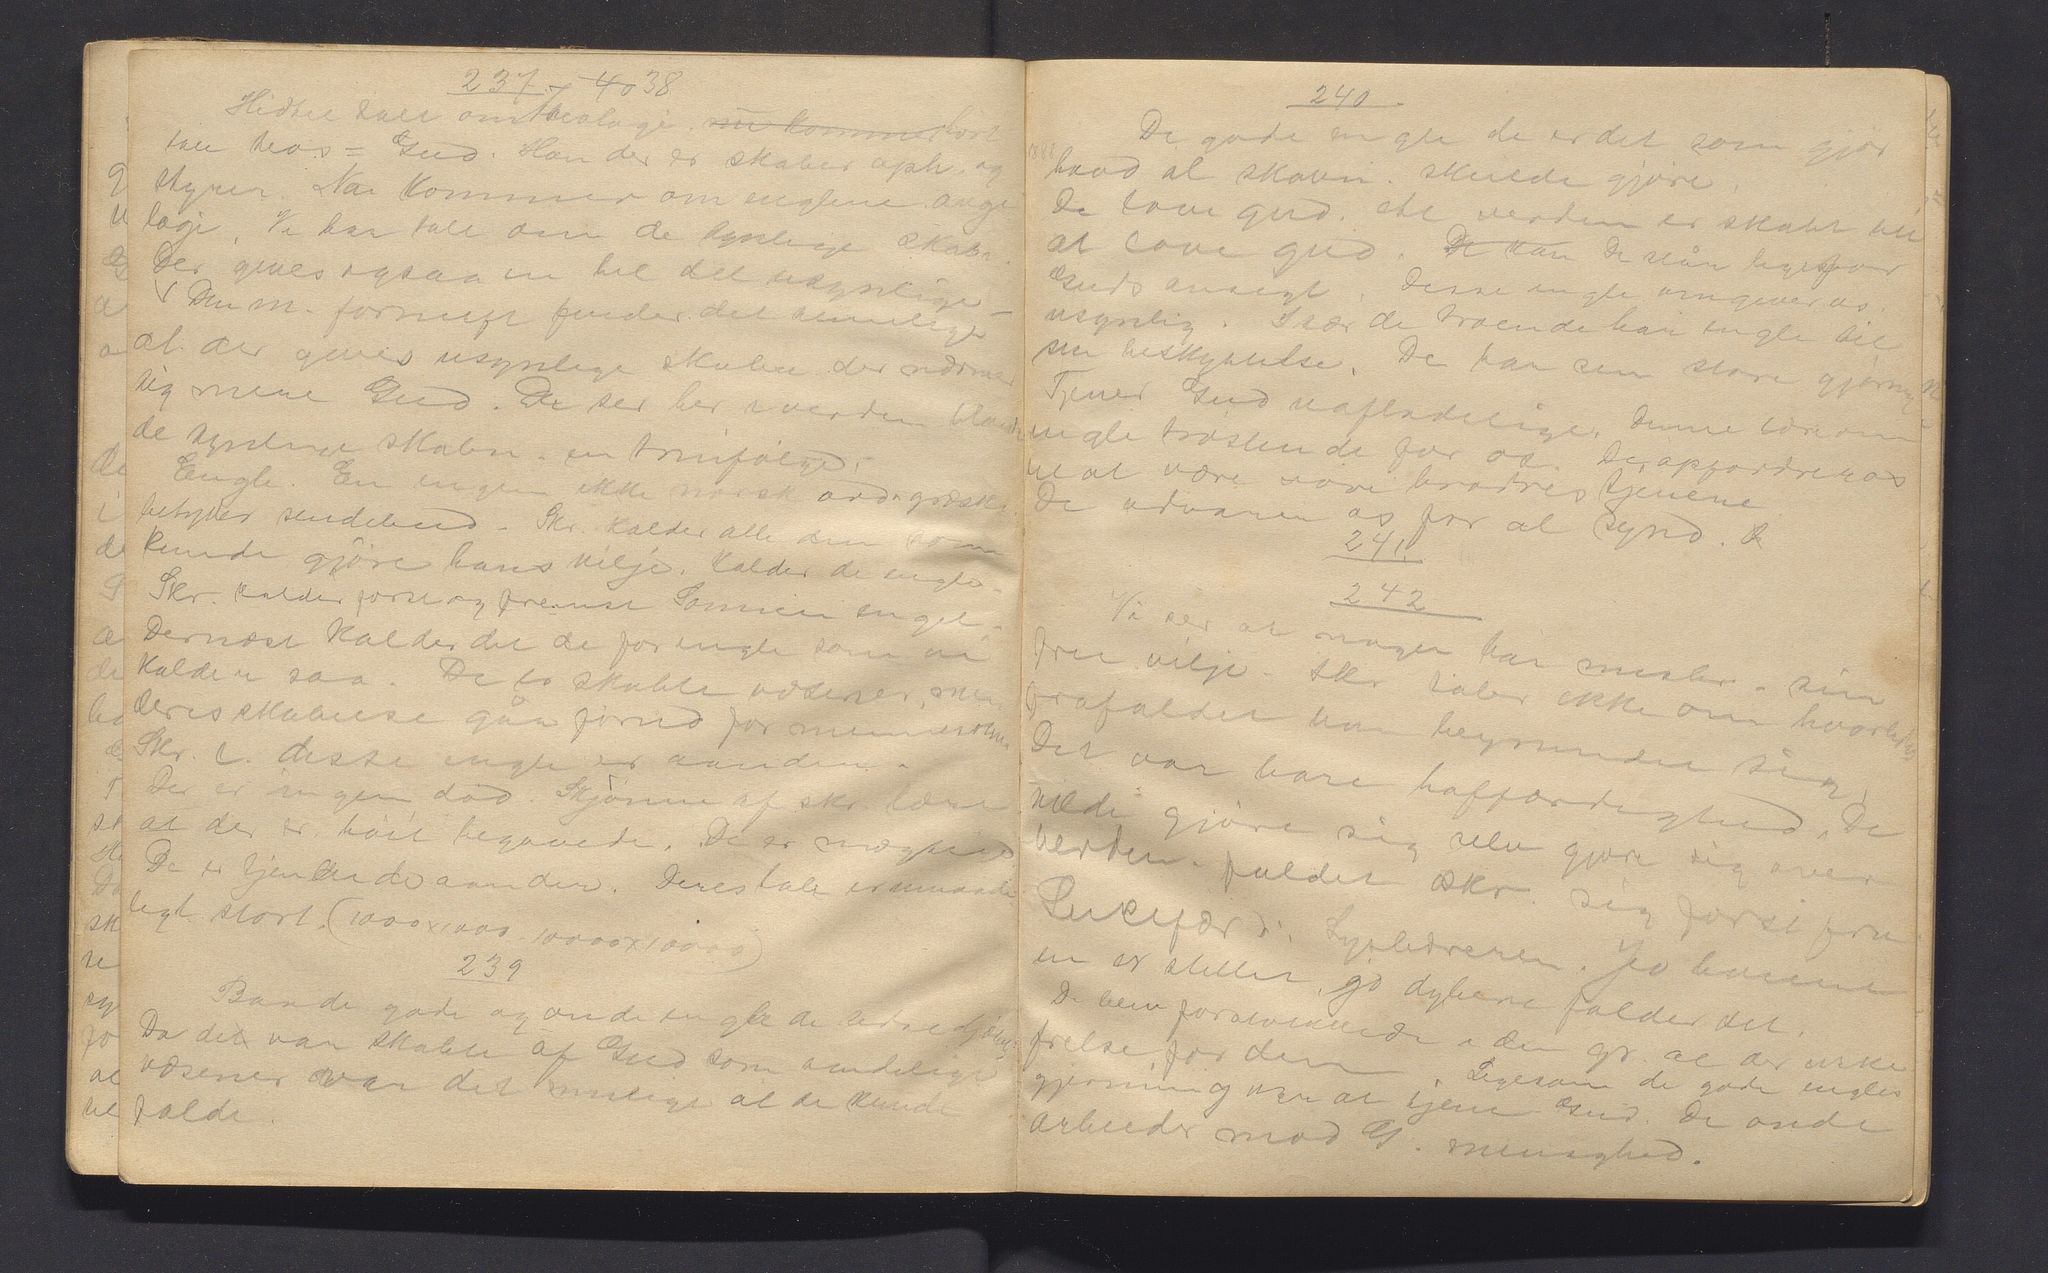 237 - 4038
Hidtil talt om theologi. nu kommer
theos = Gud. Han der er skaber oph. og
styrer. Naa kommer om englene ange
logi. Vi har talt om de synlige skabn.
Der gives ogsaa en hel del usynlige
Den m. fornuft finder det rimeligt
at der gives usynlige skabn. der nærmer
sig mere Gud. De ser her i verden blandt
de synlige skabn. en trinfølge.
Engle. En engel ikke norsk ord. græsk.
betyder sendebud. Skr. kalder alle dem som
kunde gjöre hans vilje. Kalder de engle.
Skr. kalder först og fremst Sönnen engel.
Dernæst kalder det de for engle som vi
kalder saa. De er skabte væsener, men
deres skabelse gåa forud for menneskene
Skr. l. disse engle er aander.
Der er ingen död. Skjönne af skr. lære
at der er höit begavede. De er mægtige
De er tjenende aander. Deres tale er umaade
ligt stort. (1000x1000 - 10000x10000)
239
Baade gode og onde engle de
Da det var skabte af Gud som aandelige
væsener var det mulige at de kunde
falde.
240.
De gode engle de er det som gjör
hvad al skabn. skulde gjöre.
De love gud. Al verden er skabt til
at love gud. De kan De staar lige for
Guds ansigt. Disse engle omgiver os
usynlig. Især de troende har engle til
sin beskyttelse. De har sin store gjerning
Tjener Gud uafladelige. Denne lære om
engle tröstende for os. De opfordrer os
til at være vore brödres tjenere.
De advarer os for al synd. D
241.
242
Vi ser at nogen har misbr. sin
frie vilje. Skr taler ikke om hvorledes
frafaldet kan begynde sig.
Det var bare hoffærdighed. De
vilde gjöre sig selv gjöre sig over
verden. faldet skr. sig först fra
Lucifær d. Lysbæreren. Jo höiere
en er stillet, jo dybere falder det.
De blev i den gr. at der ikke
frelse for dem. Ligesom de gode engles
gjerning var at tjene Gud. De onde
arbeider mod G. menighed.